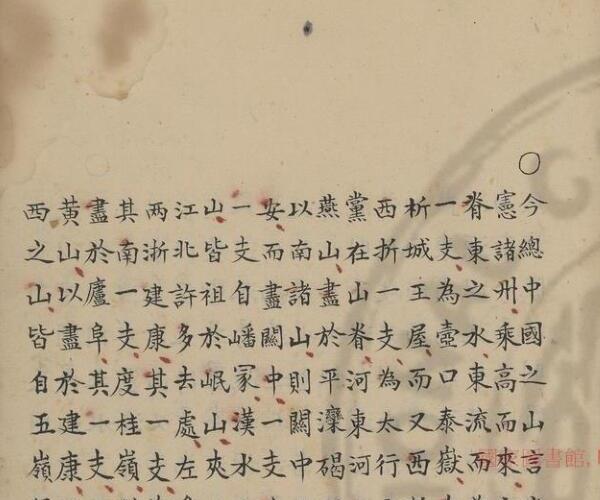 今總中國之山言
憲諸州乘高而來
脊東之水東流而
一支為壺口泰嶽
析城王屋而又西
西折一支為太行
黨在山脊河東河
燕山盡於平灤碣
以南諸山則關中
安而盡關中一支
一支自嶓冢漢水
山皆祖於岷山夾
江北許多去處左
兩浙建康其一支
其南一支度桂嶺
盡於廬阜其一支
黃山以盡於建康
西之山皆自五嶺
國家圖書館,